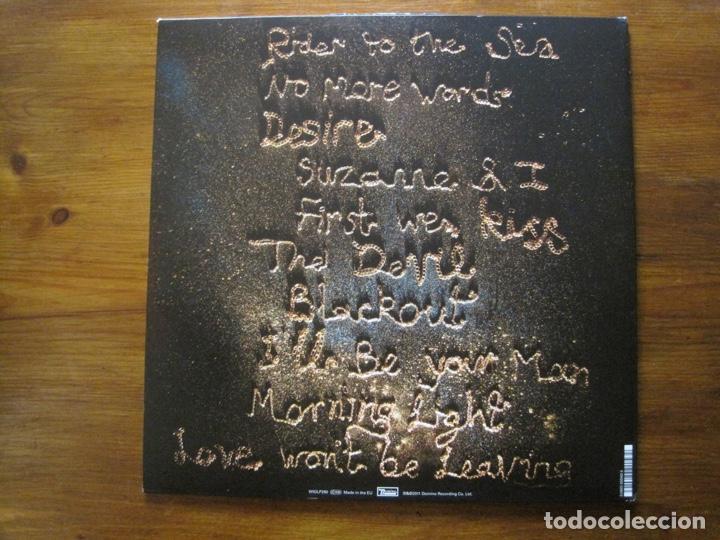 Rider to the Sea
No More Words
Desire
Suzanne & I
First we kiss
The Devil
Blackout
I'll Be your Man
Morning Light
Love won't be Leaving
Made in the EU
Domino Recording Co. Ltd.
todocoleccion.net